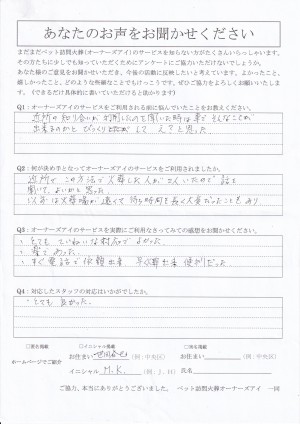 あなたのお声をお聞かせください
まだまだペット訪問火葬(オーナーズアイ)のサービスを知らない方がたくさんいらっしゃいます。
その方たちに少しでも知っていただくためにアンケートにご協力いただけないでしょうか。
あなた様のご意見をお聞かせいただき、今後の活動に反映したいと考えています。よかったこと、
嬉しかったこと、どのような些細なことでもけっこうです。ぜひご協力をよろしくお願いいたします。
(できるだけ具体的に書いていただけると助かります)
Q1:オーナーズアイのサービスをご利用される前に悩んでいたことをお教えください。
近所の知り合いが利用したのを聞いた時は車でそんなことが
出来るのかとびっくりして え?と思った。
Q2:何が決め手となってオーナーズアイのサービスをご利用されましたか。
近所でこの方法で火葬した人が二人いたので話を
聞いて、よいかと思った
以前は火葬場が遠くて待ち時間も長く大変だったこともあり
Q3:オーナーズアイのサービスを実際にご利用なさってみての感想をお聞かせください。
・とてもていねいな対応でよかった。
・すぐ電話で依頼出来、予約出来便利だった
Q4:対応したスタッフの対応はいかがでしたか。
・とても良かった。
ホームページでご紹介
□匿名掲載
□イニシャル掲載
□実名掲載
お住まい
(例:中央区)
お住まい
(例:中央区)
イニシャル M.K. (例:J.H)
氏名
ご協力、本当にありがとうございました。 ペット訪問火葬オーナーズアイ 一同